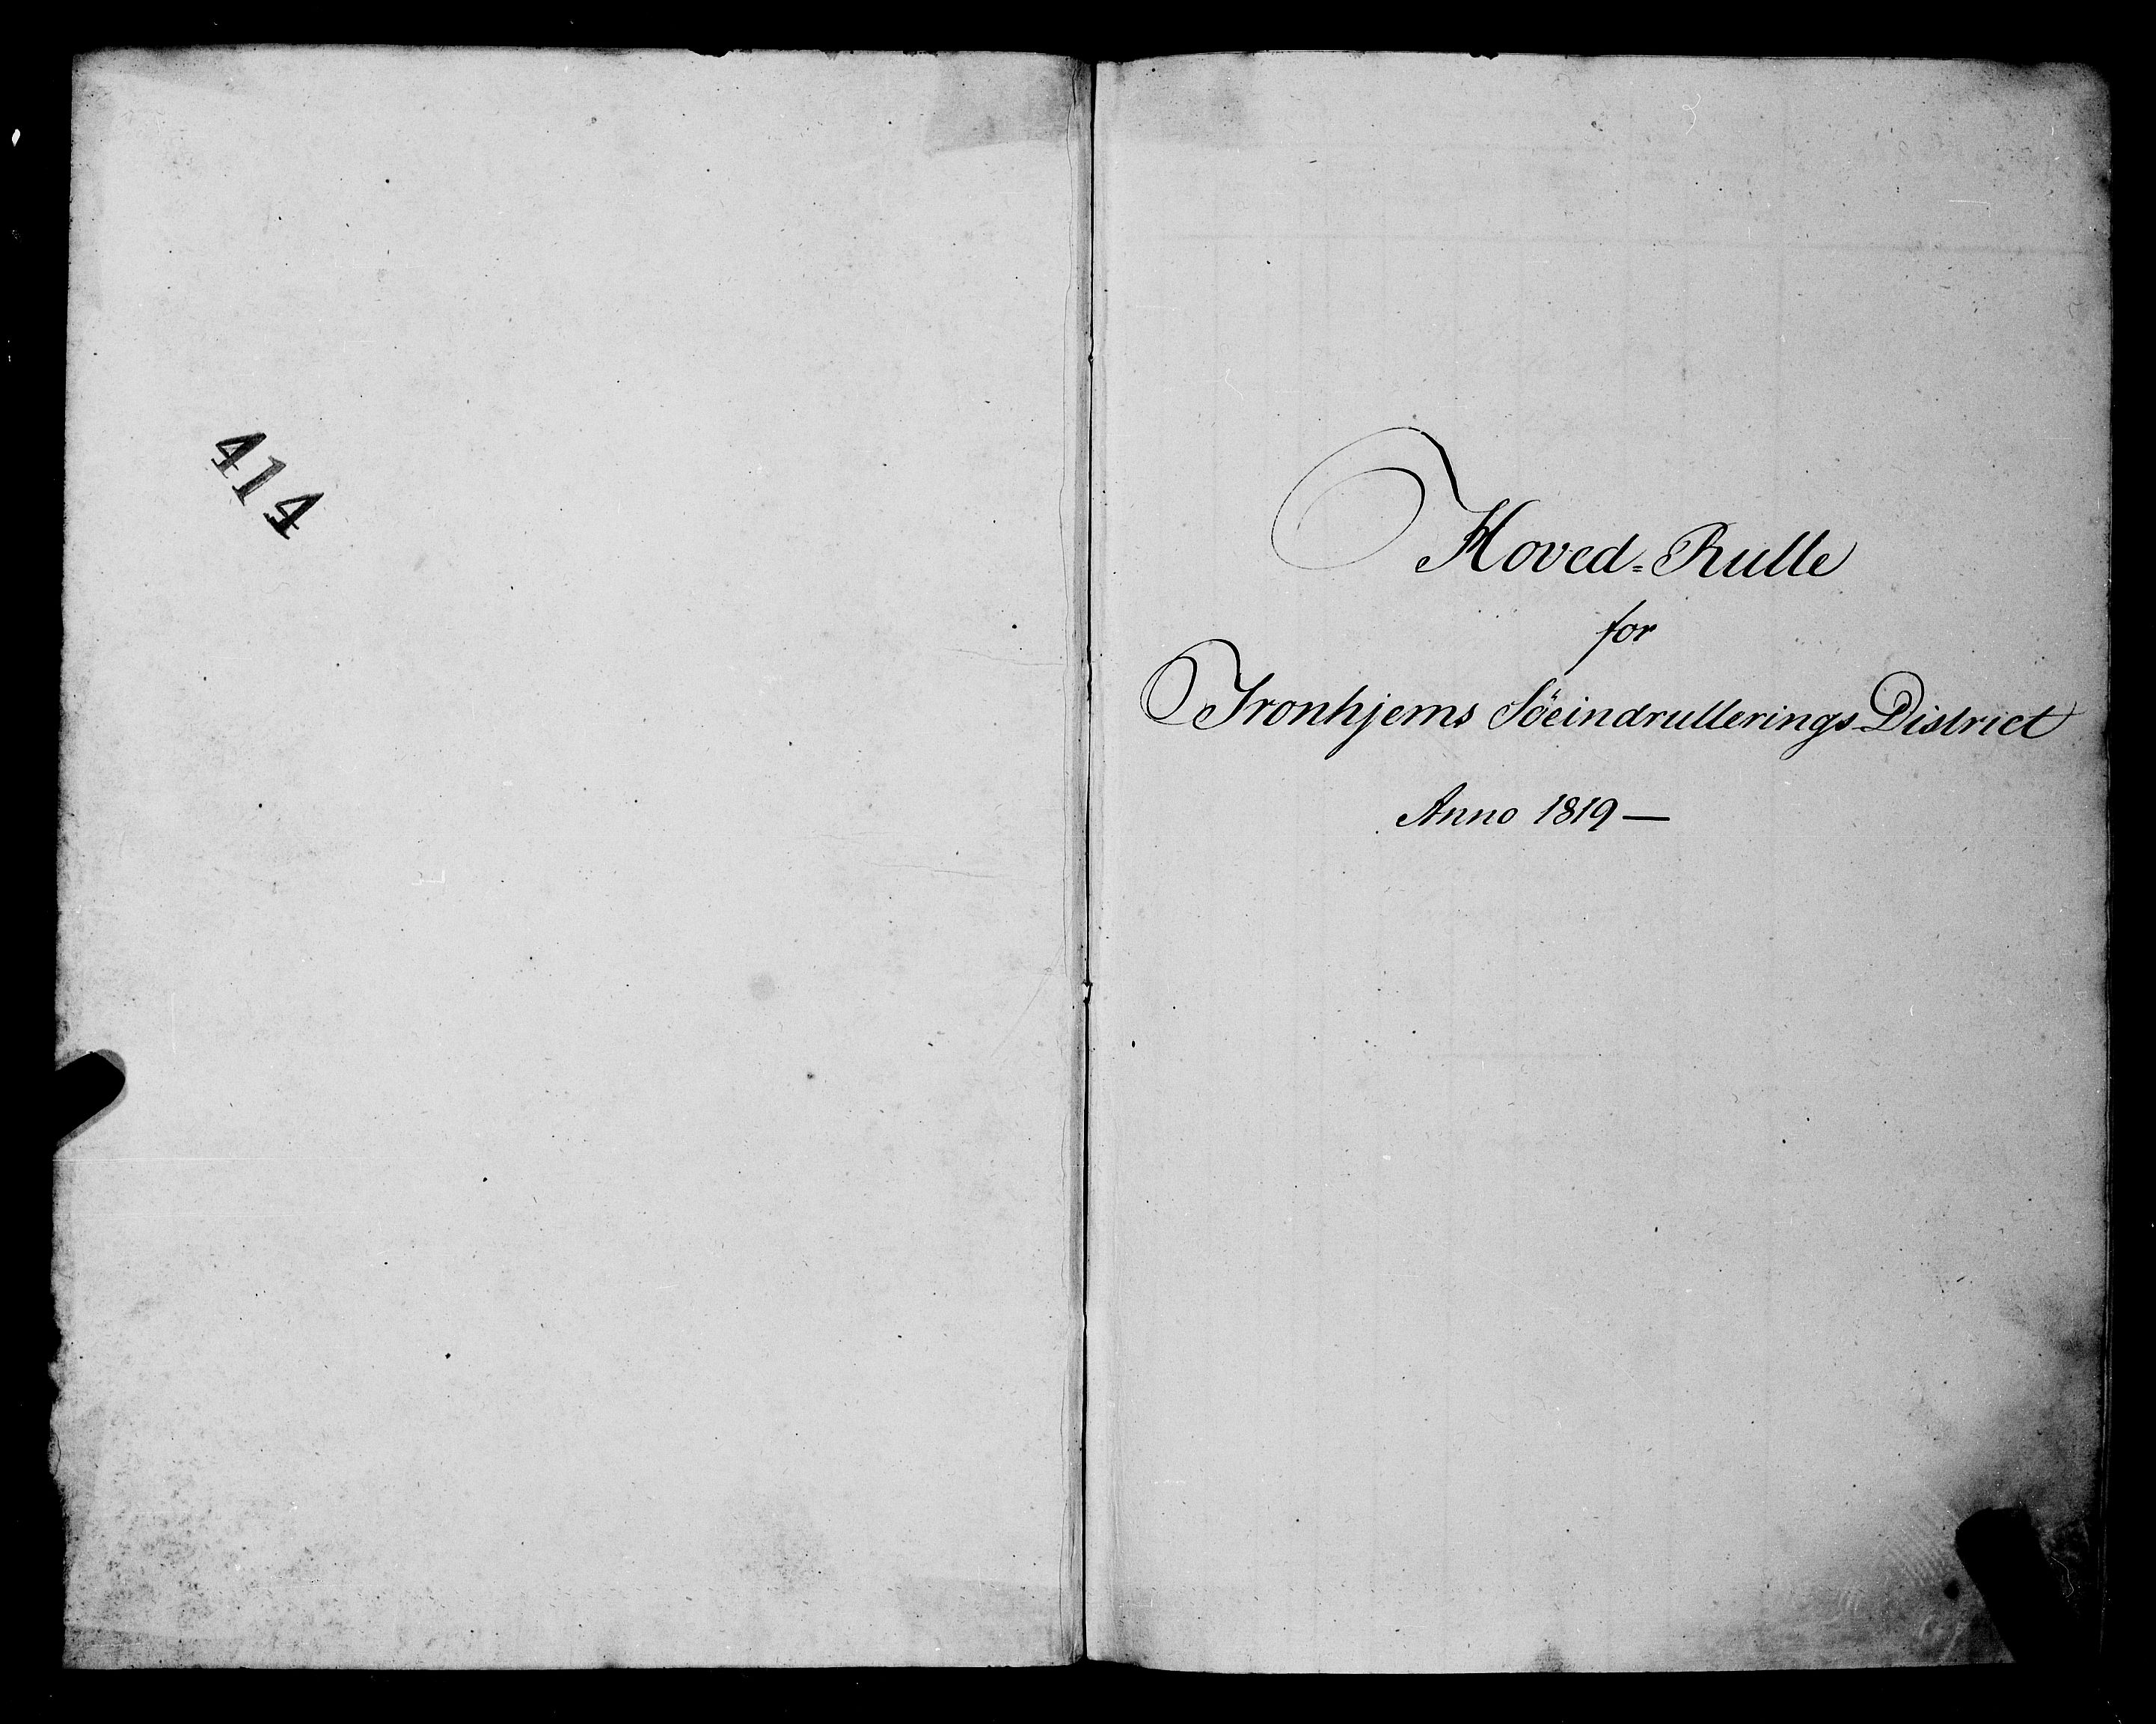 414
Hoved=Rulle
for
Tronhjems Söeindrullerings District
Anno 1819 —